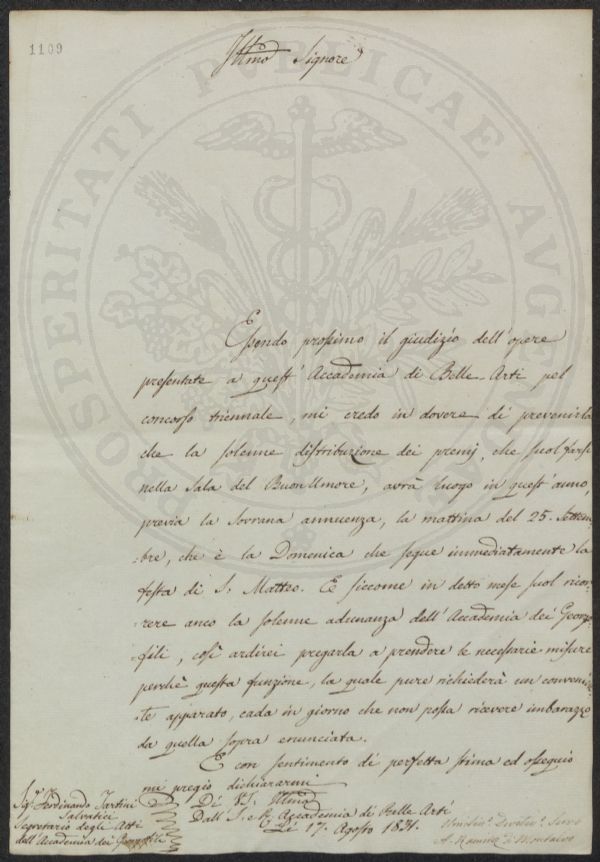 1109
Illmo Signore
PROSPERITATI PVBLICAE AVG
Essendo prossimo il giudizio dell'opere
presentate a quest'Accademia di Belle-Arti pel
concorso triennale, mi credo in dovere di prevenirla
che la solenne distribuzione dei premj, che suol farsi
nella Sala del Buonumore, avrà luogo in quest'anno,
previa la Sovrana annuenza, la mattina del 25. Settem-
bre, che è la Domenica che segue immediatamente la
festa di S. Matteo. E siccome in detto mese suol ricor-
rere anco la solenne adunanza dell'Accademia dei Georgo-
fili, così ardirei pregarla a prendere le necessarie misure
perchè questa funzione, la quale pure richiederà un convenien-
te apparato, cada in giorno che non possa ricevere imbarazzo
da quella sopra enunciata.
E con sentimento di perfetta stima ed ossequio
mi pregio dichiararmi
Di VS. Illma
Dall'I. e R. Accademia di Belle Arti
Li 17. Agosto 1831.
Sigr. Ferdinando Tartini
Salvatici
Segretario degli Atti
dell'Accademia dei Georgofili
Devotmo. Servo
A. Ramirez di Montalvo